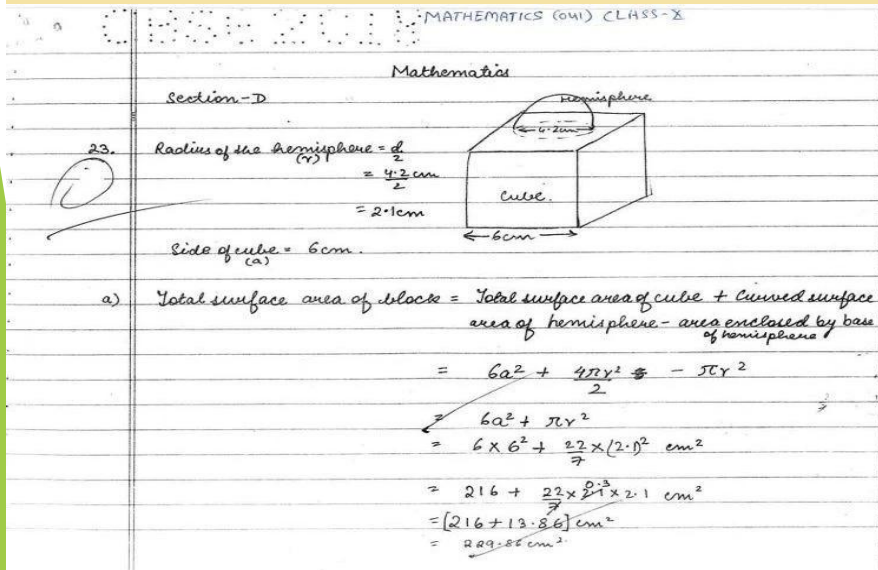 CBSE 2018
MATHEMATICS (041) CLASS-X
Mathematics
Section-D
Hemisphere
4.2cm
cube.
6cm
23. Radius of the hemisphere = d/2
(r)
= 4.2 cm/2
= 2.1cm
Side of cube = 6cm.
(a)
a) Total surface area of block = Total surface area of cube + Curved surface
area of hemisphere - area enclosed by base
of hemisphere
= 6a² + 4πr²/2 - πr²
= 6a² + πr²
= 6 x 6² + 22/7 x (2.1)² cm²
= 216 + 22/7 x 2.1 x 2.1 cm²
0.3
= [216 + 13.86] cm²
= 229.86 cm².